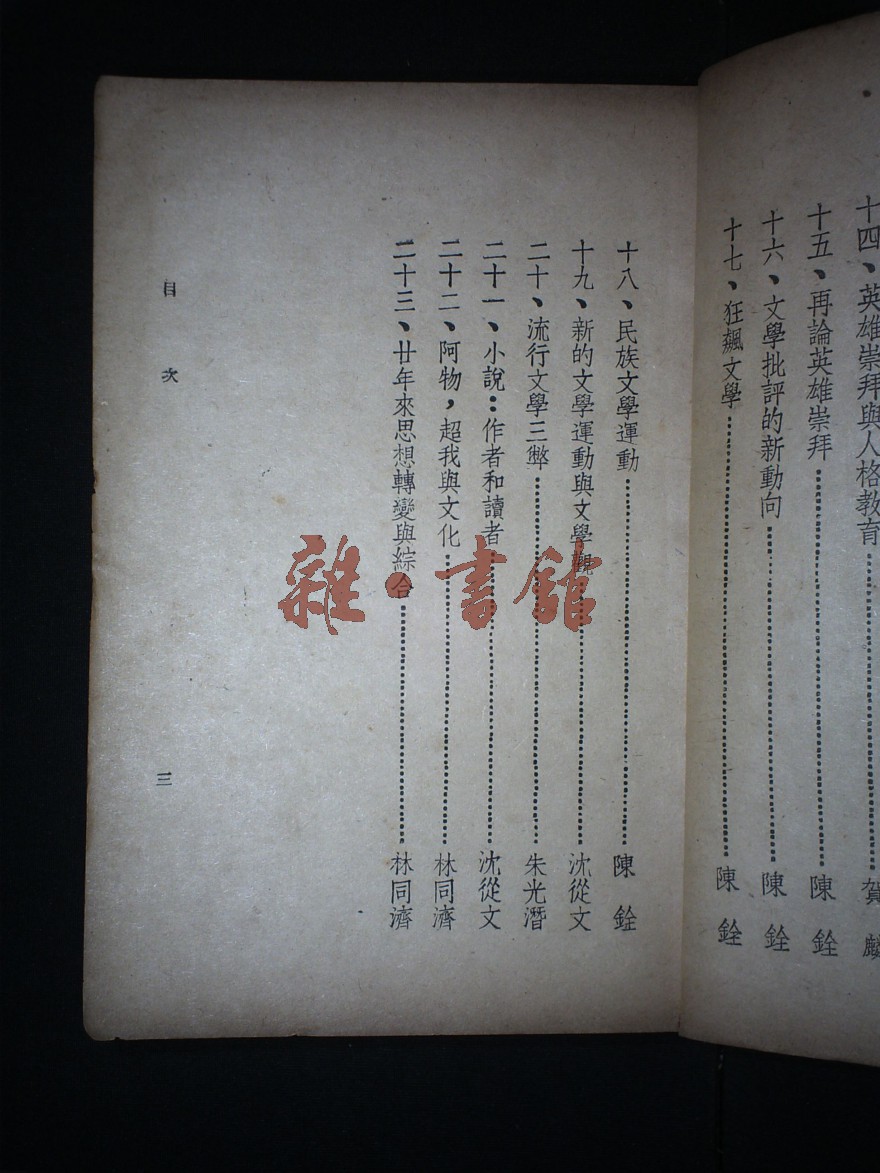 十四、英雄崇拜與人格教育 賀麟
十五、再論英雄崇拜 陳銓
十六、文學批評的新動向 陳銓
十七、狂飆文學 陳銓
十八、民族文學運動 陳銓
十九、新的文學運動與文學觀 沈從文
二十、流行文學三弊 朱光潛
二十一、小說：作者和讀者 沈從文
二十二、阿物，超我與文化 林同濟
二十三、廿年來思想轉變與綜合 林同濟
目次
三
雜·書館